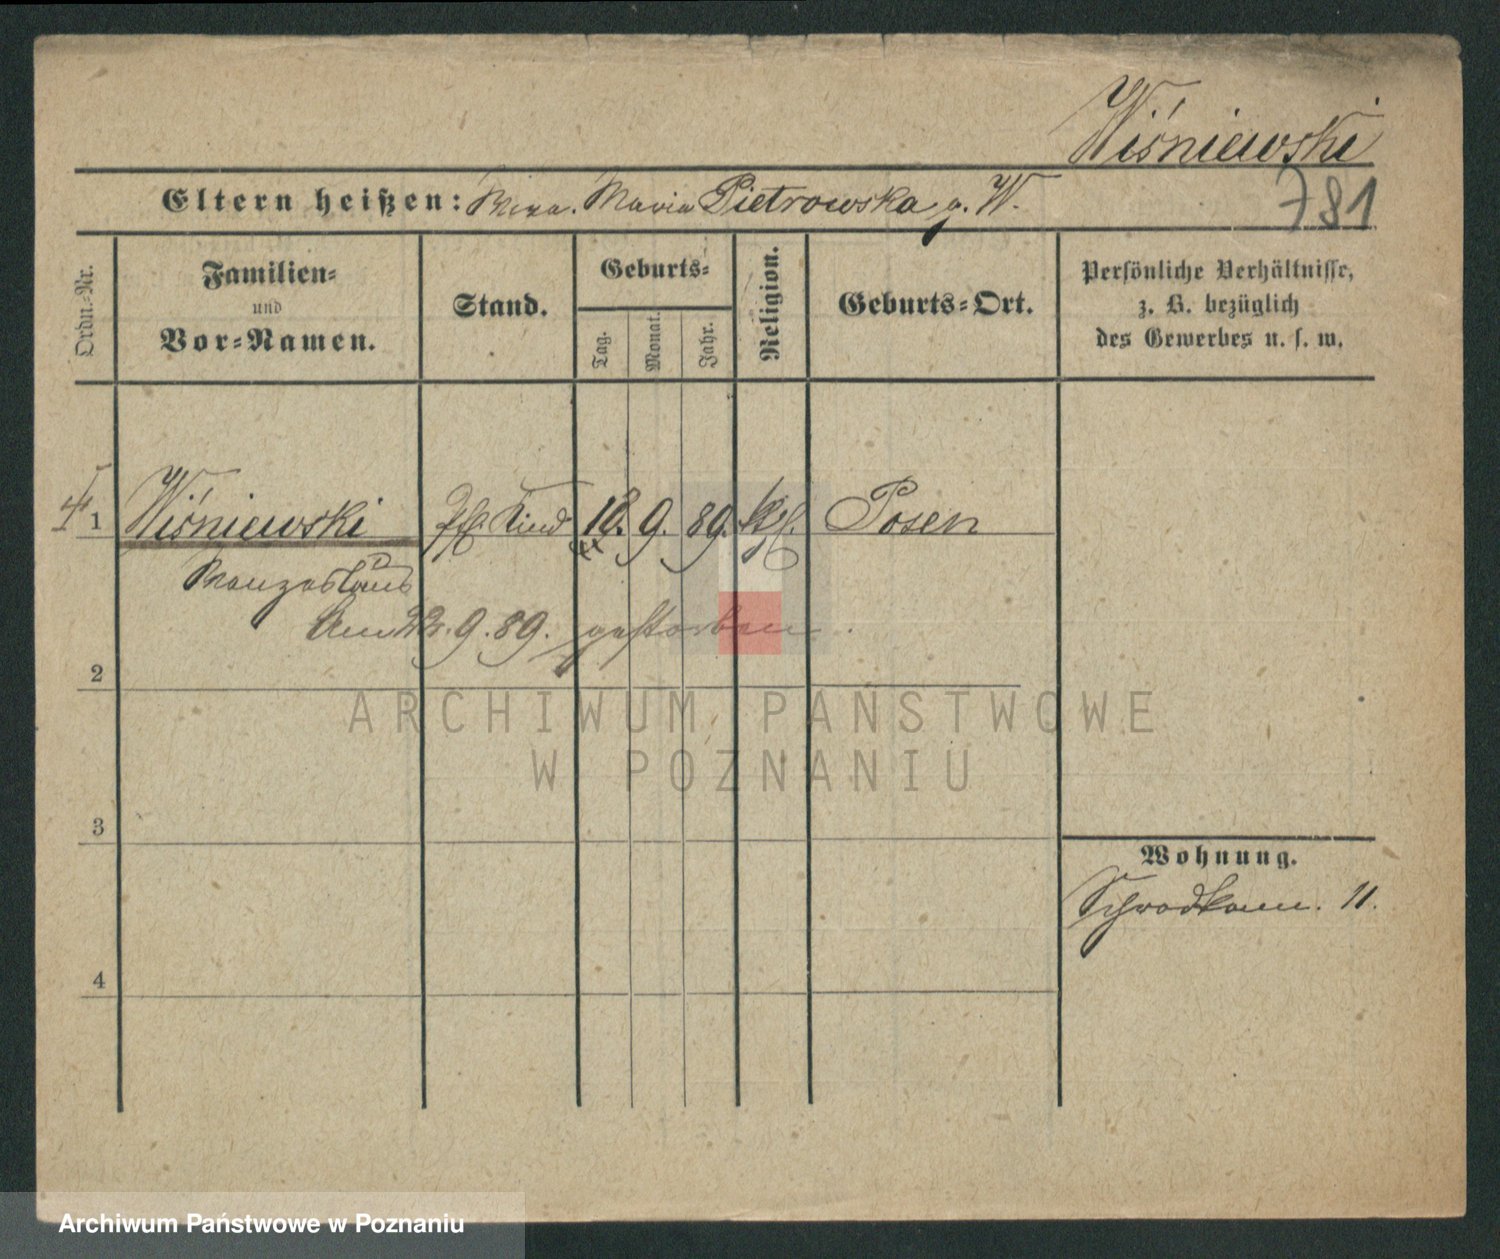 Wiśniewski
Eltern heißen: Maria Pietrowska g. W.
781
Ordn.-Nr.
Familien-
und
Vor-Namen.
Stand.
Geburts-
Tag.
Monat.
Jahr.
Religion.
Geburts-Ort.
Persönliche Verhältnisse,
z. B. bezüglich
des Gewerbes u. s. w.
1 Wiśniewski Kind 18. 9. 89. kth. Posen
Am 9. 89. gestorben.
2
3
4
Wohnung.
11.
ARCHIWUM PAŃSTWOWE
W POZNANIU
Archiwum Państwowe w Poznaniu